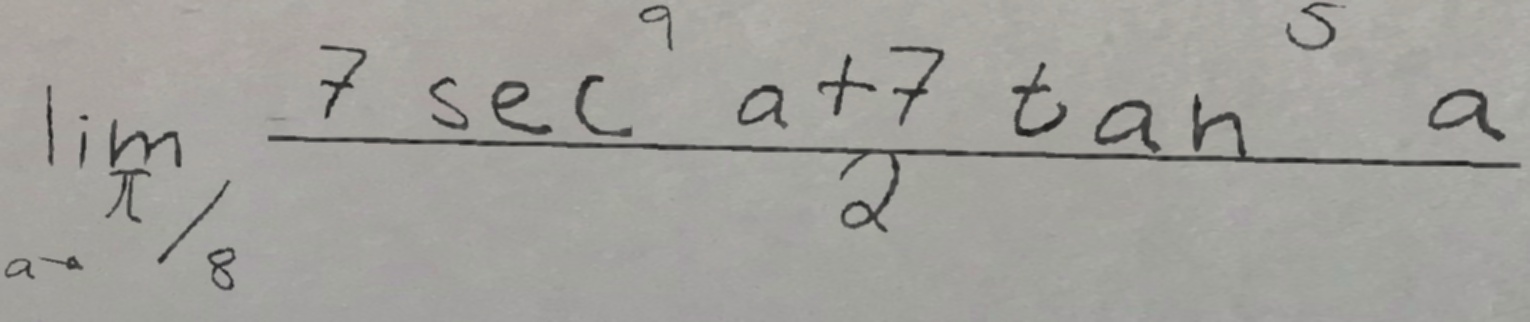 lim a→ π/8 \frac{7 sec^9 a+7 tan^5 a}{2}